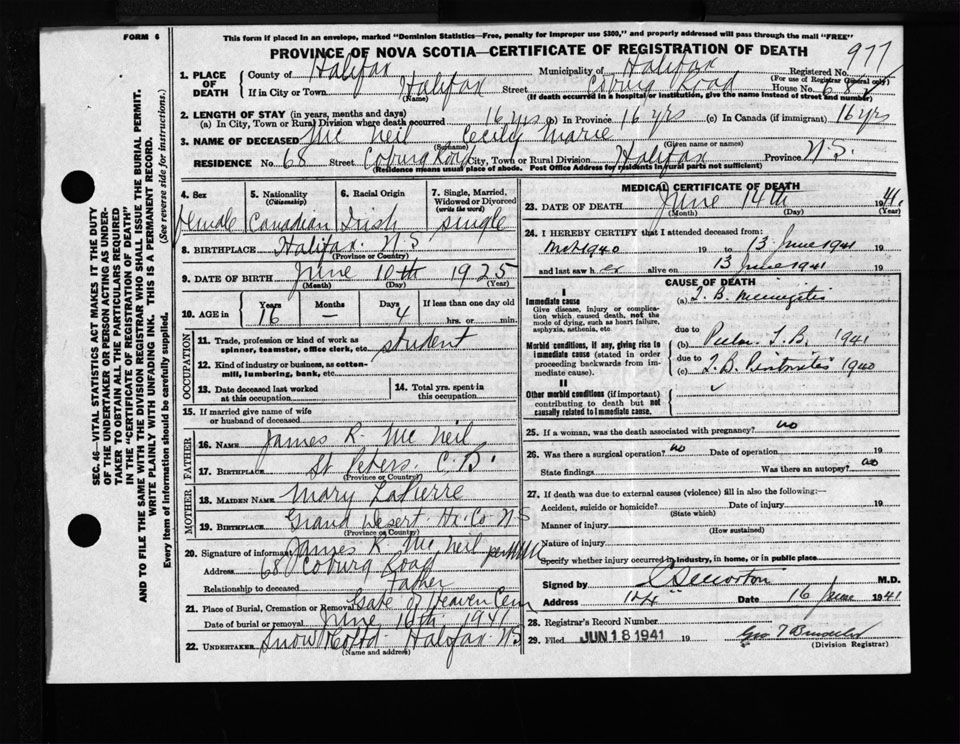 FORM 6
This form if placed in an envelope, marked "Dominion Statistics—Free, penalty for improper use $300," and properly addressed will pass through the mail "FREE"
PROVINCE OF NOVA SCOTIA—CERTIFICATE OF REGISTRATION OF DEATH
977
SEC. 46—VITAL STATISTICS ACT MAKES IT THE DUTY
OF THE UNDERTAKER OR PERSON ACTING AS UNDER-
TAKER TO OBTAIN ALL THE PARTICULARS REQUIRED
IN THE "CERTIFICATE OF REGISTRATION OF DEATH"
AND TO FILE THE SAME WITH THE DIVISION REGISTRAR WHO SHALL ISSUE THE BURIAL PERMIT.
WRITE PLAINLY WITH UNFADING INK. THIS IS A PERMANENT RECORD.
Every item of information should be carefully supplied. (See reverse side for instructions.)
1. PLACE OF DEATH County of Halifax Municipality of Halifax Registered No. (For use of Registrar General only)
If in City or Town Halifax (Name) Street Coburg Road House No. 68
(If death occurred in a hospital or institution, give the name instead of street and number)
2. LENGTH OF STAY (in years, months and days)
(a) In City, Town or Rural Division where death occurred 16 yrs (b) In Province 16 yrs (c) In Canada (if immigrant) 16 yrs
3. NAME OF DECEASED Mc Neil (Surname) Cecily Marie (Given name or names)
RESIDENCE No. 68 Street Coburg Road City, Town or Rural Division Halifax Province N.S.
(Residence means usual place of abode. Post Office Address for residents in rural parts not sufficient)
4. Sex Female
5. Nationality (Citizenship) Canadian
6. Racial Origin Irish
7. Single, Married, Widowed or Divorced (write the word) single
8. BIRTHPLACE Halifax N S
(Province or Country)
9. DATE OF BIRTH June 10th 1925
(Month) (Day) (Year)
10. AGE in Years 16 Months — Days 4 If less than one day old hrs. or min.
OCCUPATION
11. Trade, profession or kind of work as spinner, teamster, office clerk, etc. student
12. Kind of industry or business, as cotton-mill, lumbering, bank, etc.
13. Date deceased last worked at this occupation
14. Total yrs. spent in this occupation
15. If married give name of wife or husband of deceased
FATHER
16. NAME James R. Mc Neil
17. BIRTHPLACE St Peters. C.B.
(Province or Country)
MOTHER
18. MAIDEN NAME Mary LaPierre
19. BIRTHPLACE Grand Desert Hx. Co. N S
(Province or Country)
20. Signature of informant James R. Mc Neil per
Address 68 Coburg Road
Relationship to deceased Father
21. Place of Burial, Cremation or Removal Gate of Heaven Cem
Date of burial or removal June 16th 1941
22. UNDERTAKER Snow Co Ltd. Halifax NS
(Name and address)
MEDICAL CERTIFICATE OF DEATH
23. DATE OF DEATH June 14th 1941
(Month) (Day) (Year)
24. I HEREBY CERTIFY that I attended deceased from:
1940 19 to 13 June 1941 19
and last saw her alive on 13 June 1941 19
CAUSE OF DEATH
I
Immediate cause
Give disease, injury or complication which caused death, not the mode of dying, such as heart failure, asphyxia, asthenia, etc
(a) T. B. Meningitis
due to
Morbid conditions, if any, giving rise to immediate cause (stated in order proceeding backwards from immediate cause).
(b) Pulm. T. B. 1941
due to
(c) T. B. 1940
II
Other morbid conditions (if important) contributing to death but not causally related to immediate cause.
25. If a woman, was the death associated with pregnancy? no
26. Was there a surgical operation? no Date of operation 19
State findings Was there an autopsy? no
27. If death was due to external causes (violence) fill in also the following:—
Accident, suicide or homicide? Date of injury 19
(State which)
Manner of injury
(How sustained)
Nature of injury
Specify whether injury occurred in industry, in home, or in public place
Signed by Morton M.D.
Address Date 16 June 1941
28. Registrar's Record Number
29. Filed JUN 18 1941 19
(Division Registrar)